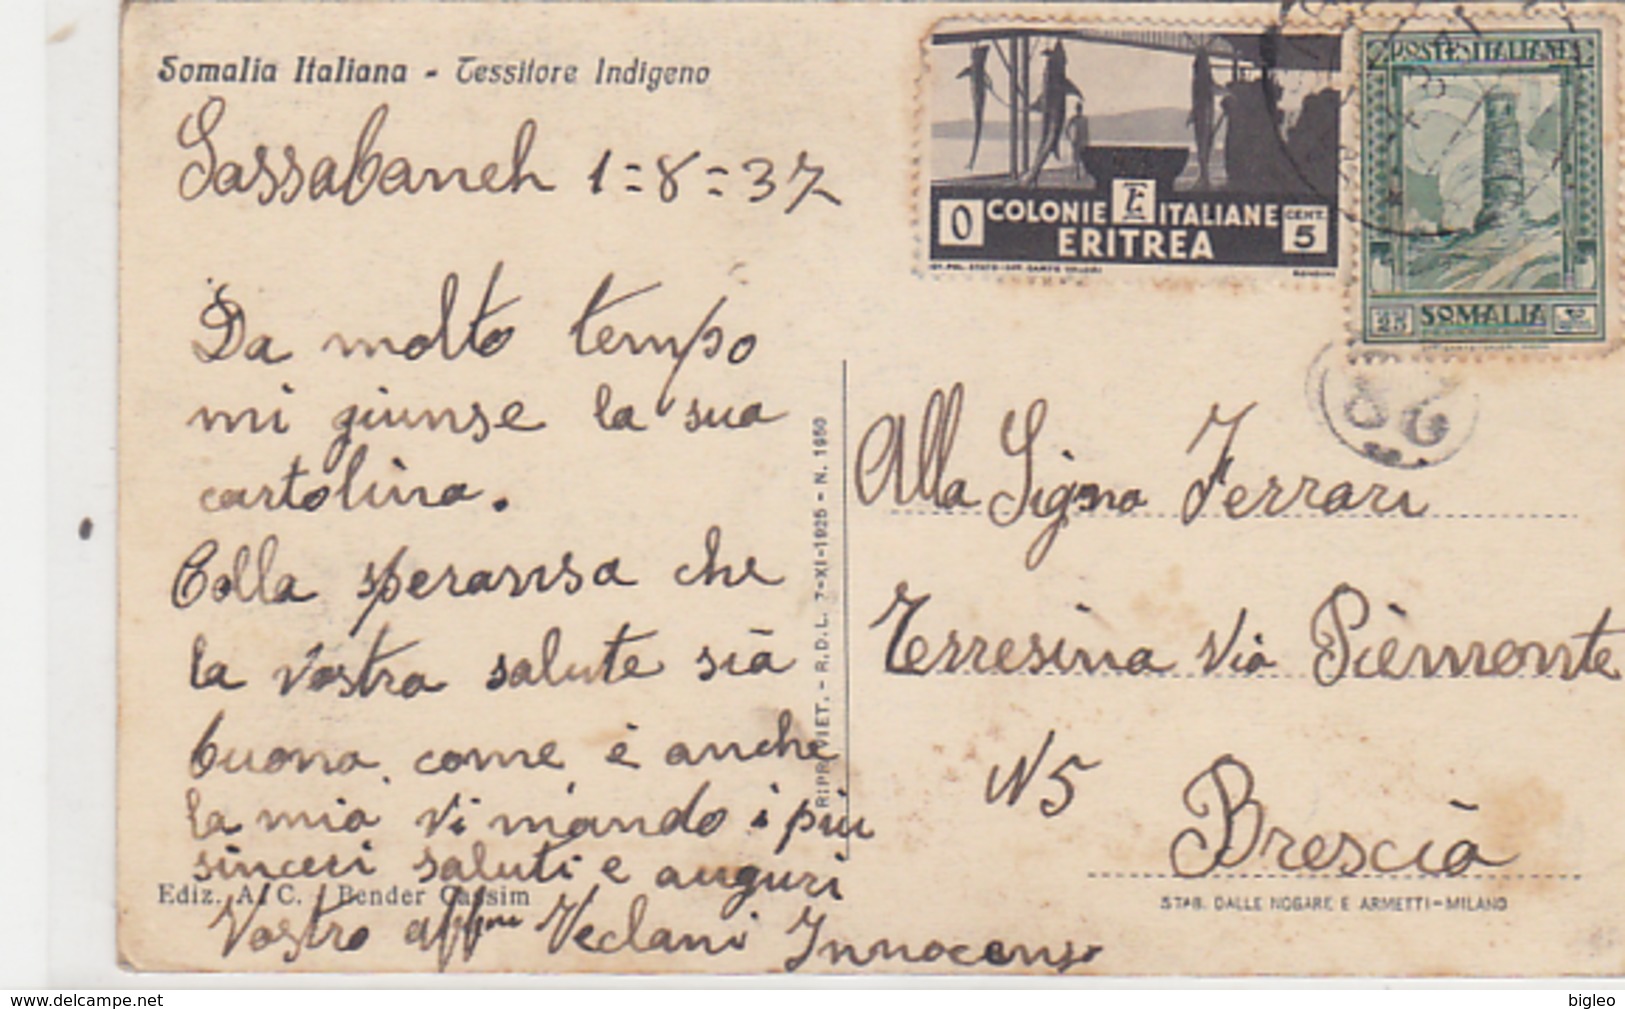 Somalia Italiana - Tessitore Indigeno
Sassabaneh 1=8=37
Da molto tempo
mi giunse la sua
cartolina.
Colla speransa che
la vostra salute sià
buona come è anche
la mia vi mando i più
sinceri saluti e auguri
Vostro aff.mo Vedani Innocenso
Ediz. A. C. Bender Cassim
RIPR. VIET. - R.D.L. 7-XI-1925 - N. 1950
0 COLONIE ITALIANE CENT. 5
ERITREA
POSTE ITALIANE
25 SOMALIA
28
Alla Signa Ferrari
Terresina Via Pièmonte
N 5
Brescià
STAB. DALLE NOGARE E ARMETTI-MILANO
www.delcampe.net
bigleo